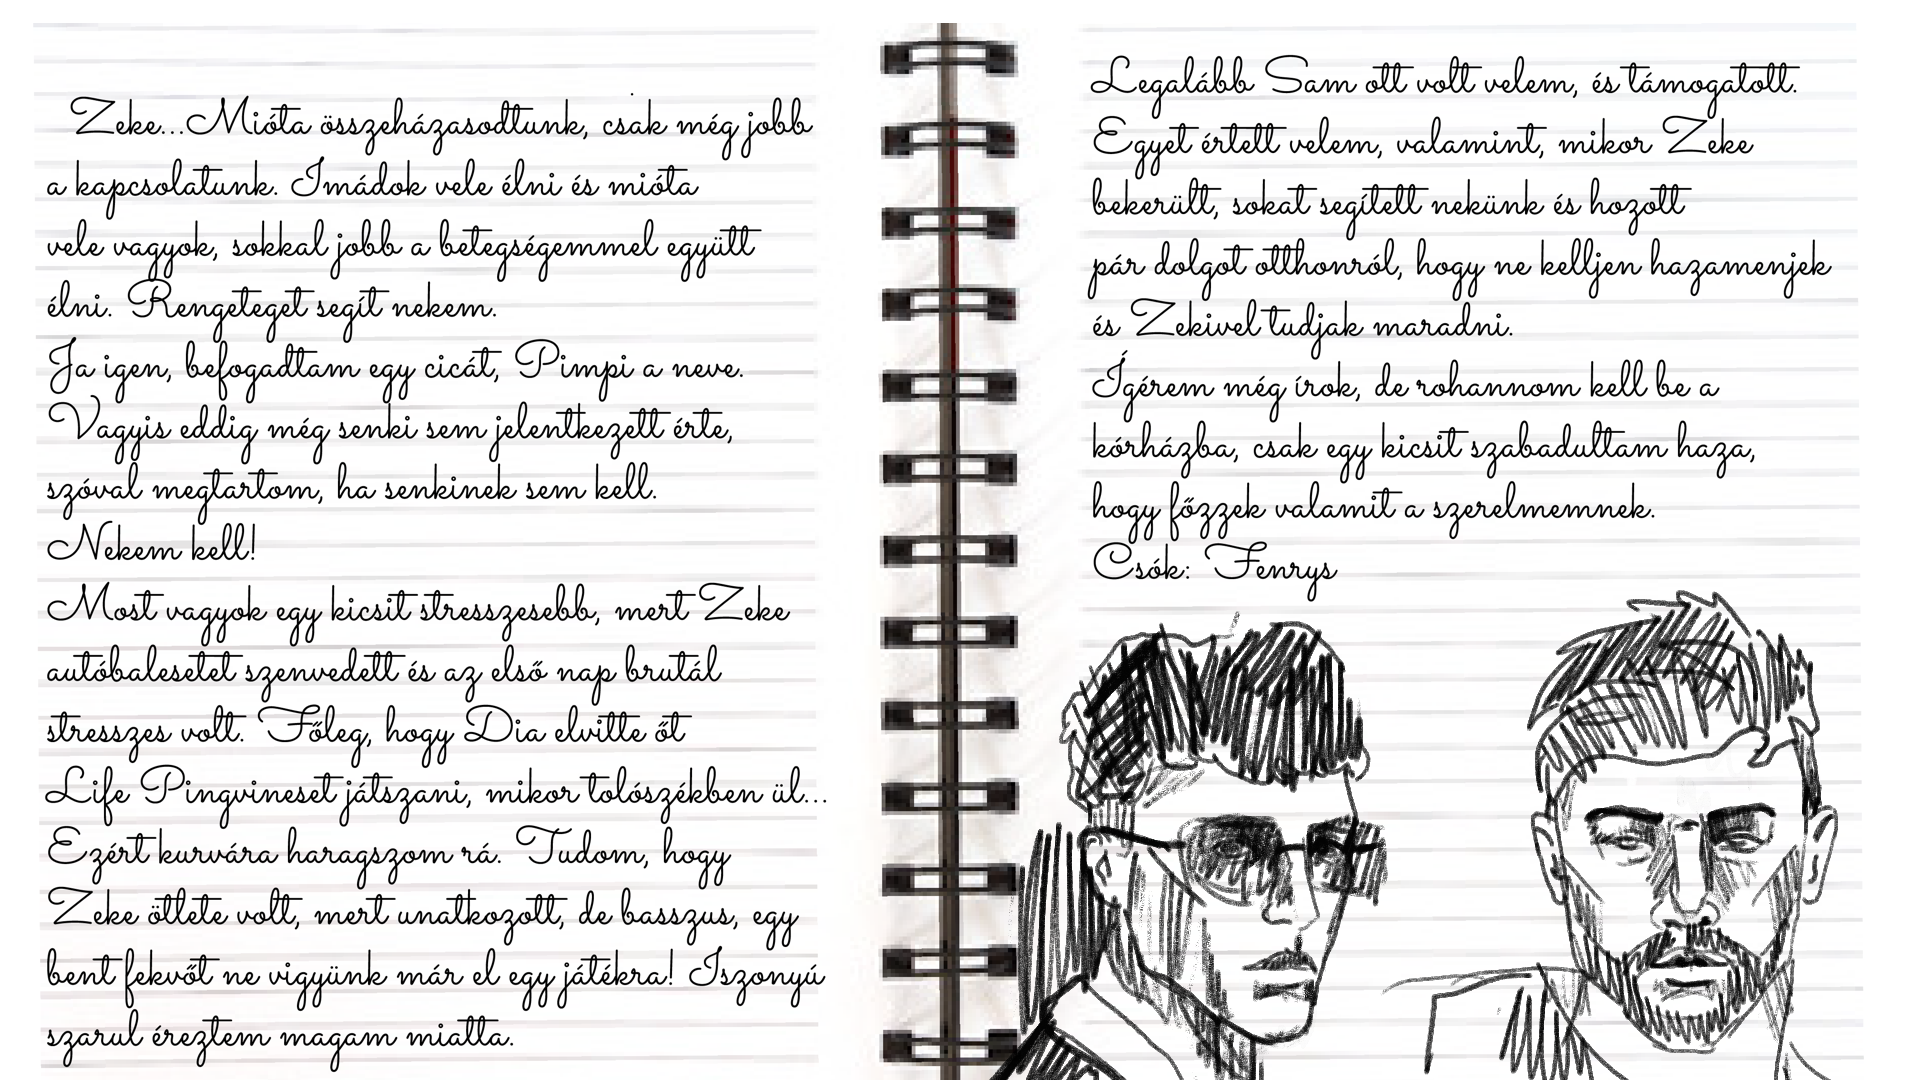 Zeke...Mióta összeházasodtunk, csak még jobb
a kapcsolatunk. Imádok vele élni és mióta
vele vagyok, sokkal jobb a betegségemmel együtt
élni. Rengeteget segít nekem.
Ja igen, befogadtam egy cicát, Pimpi a neve.
Vagyis eddig még senki sem jelentkezett érte,
szóval megtartom, ha senkinek sem kell.
Nekem kell!
Most vagyok egy kicsit stresszesebb, mert Zeke
autóbalesetet szenvedett és az első nap brutál
stresszes volt. Főleg, hogy Dia elvitte őt
Life Pingvineset játszani, mikor tolószékben ül...
Ezért kurvára haragszom rá. Tudom, hogy
Zeke ötlete volt, mert unatkozott, de basszus, egy
bent fekvőt ne vigyünk már el egy játékra! Iszonyú
szarul éreztem magam miatta.
Legalább Sam ott volt velem, és támogatott.
Egyet értett velem, valamint, mikor Zeke
bekerült, sokat segített nekünk és hozott
pár dolgot otthonról, hogy ne kelljen hazamenjek
és Zekivel tudjak maradni.
Ígérem még írok, de rohannom kell be a
kórházba, csak egy kicsit szabadultam haza,
hogy főzzek valamit a szerelmemnek.
Csók: Fenrys